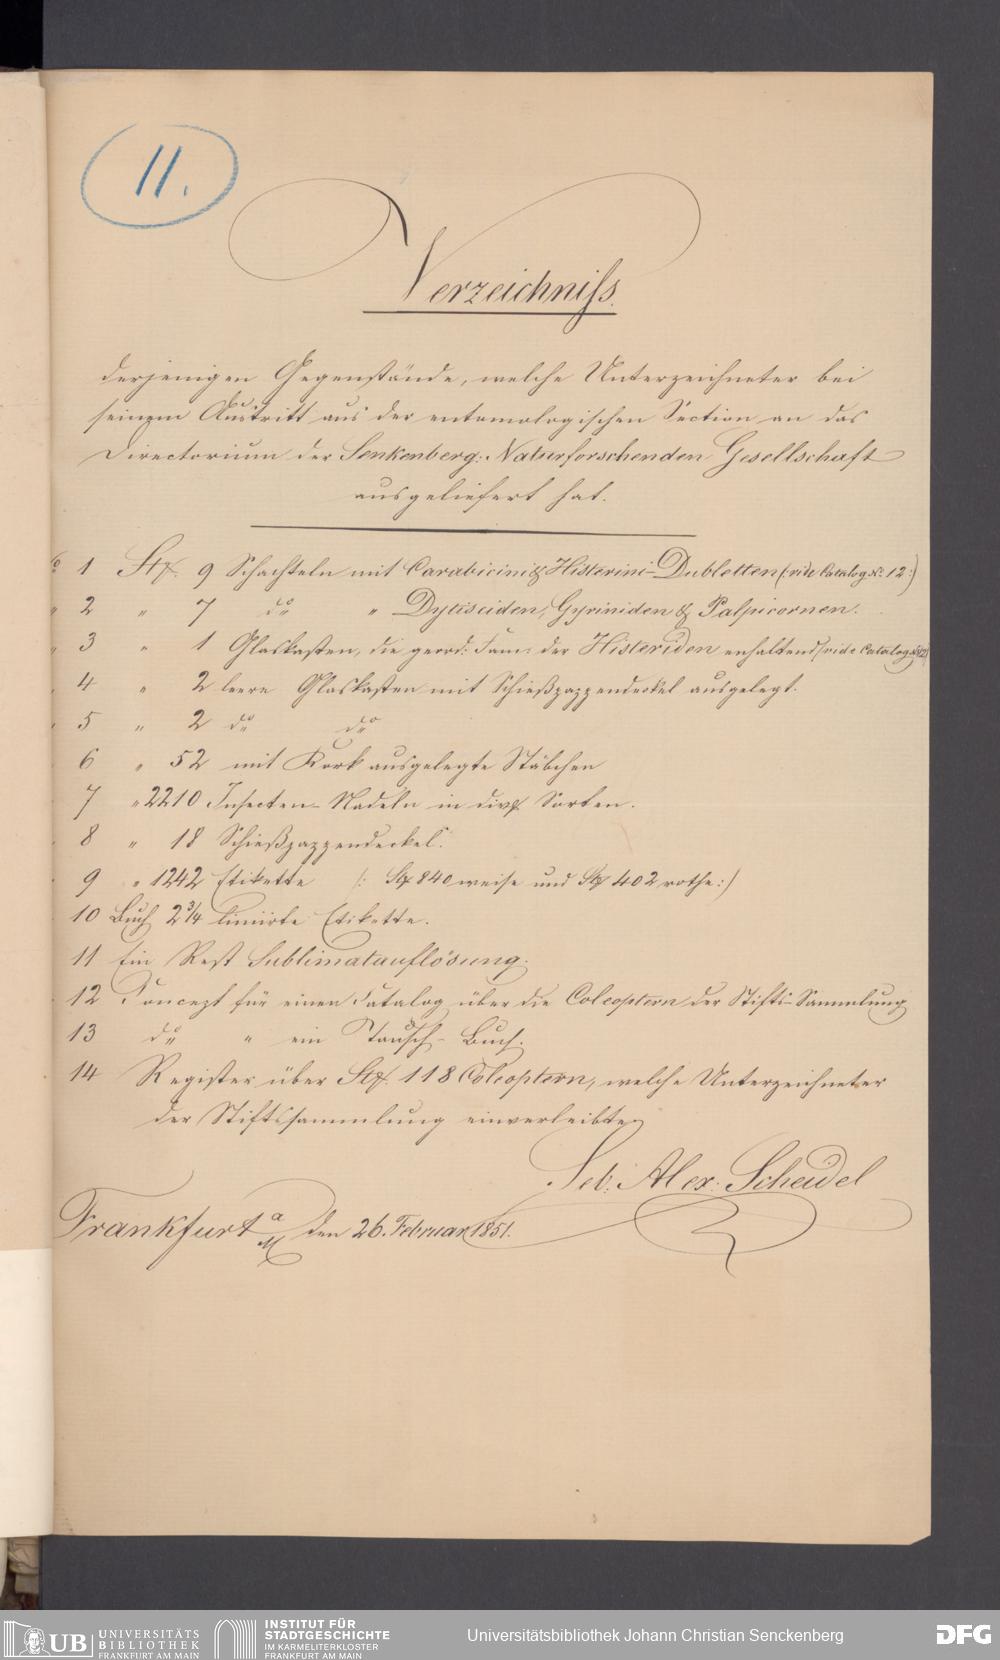 11.
Verzeichniß.
derjenigen Gegenstände, welche Unterzeichneter bei
seinem Austritt aus der entomologischen Section an das
Directorium der Senkenberg: Naturforschenden Gesellschaft
ausgeliefert hat.
No 1 Stk. 9 Schachteln mit Carabicini & Histerini-Dubletten (: vide Catalog No. 12 :)
" 2 " 7 do " Dytisciden, Gyriniden & Palpicornen.
" 3 " 1 Glaskasten, die geord: Fam: der Histeriden enhaltend (vide Catalog
" 4 " 2 leere Glaskasten mit Schießpappendeckel ausgelegt.
" 5 " 2 do do
6 " 52 mit Kork ausgelegte Stäbchen
7 " 2210 Insecten-Nadeln in divs Sorten.
8 " 18 Schießpappendeckel.
9 " 1242 Etikette (: Stk 840 weise und Stk 402 rothe :)
10 Buch 2 3/4 liniirte Etikette.
11 Ein Rest Sublimatauflösung.
12 Concept für einen Catalog über die Coleoptern der Stifts-Sammlung
13 do " ein Tausch-Buch.
14 Register über Stk. 118 Coleoptern, welche Unterzeichneter
der Stiftssammlung einverleibte
Seb: Alex: Scheidel
Frankfurt a M den 26. Februar 1851.
UB UNIVERSITÄTS
BIBLIOTHEK
FRANKFURT AM MAIN
INSTITUT FÜR
STADTGESCHICHTE
IM KARMELITERKLOSTER
FRANKFURT AM MAIN
Universitätsbibliothek Johann Christian Senckenberg
DFG